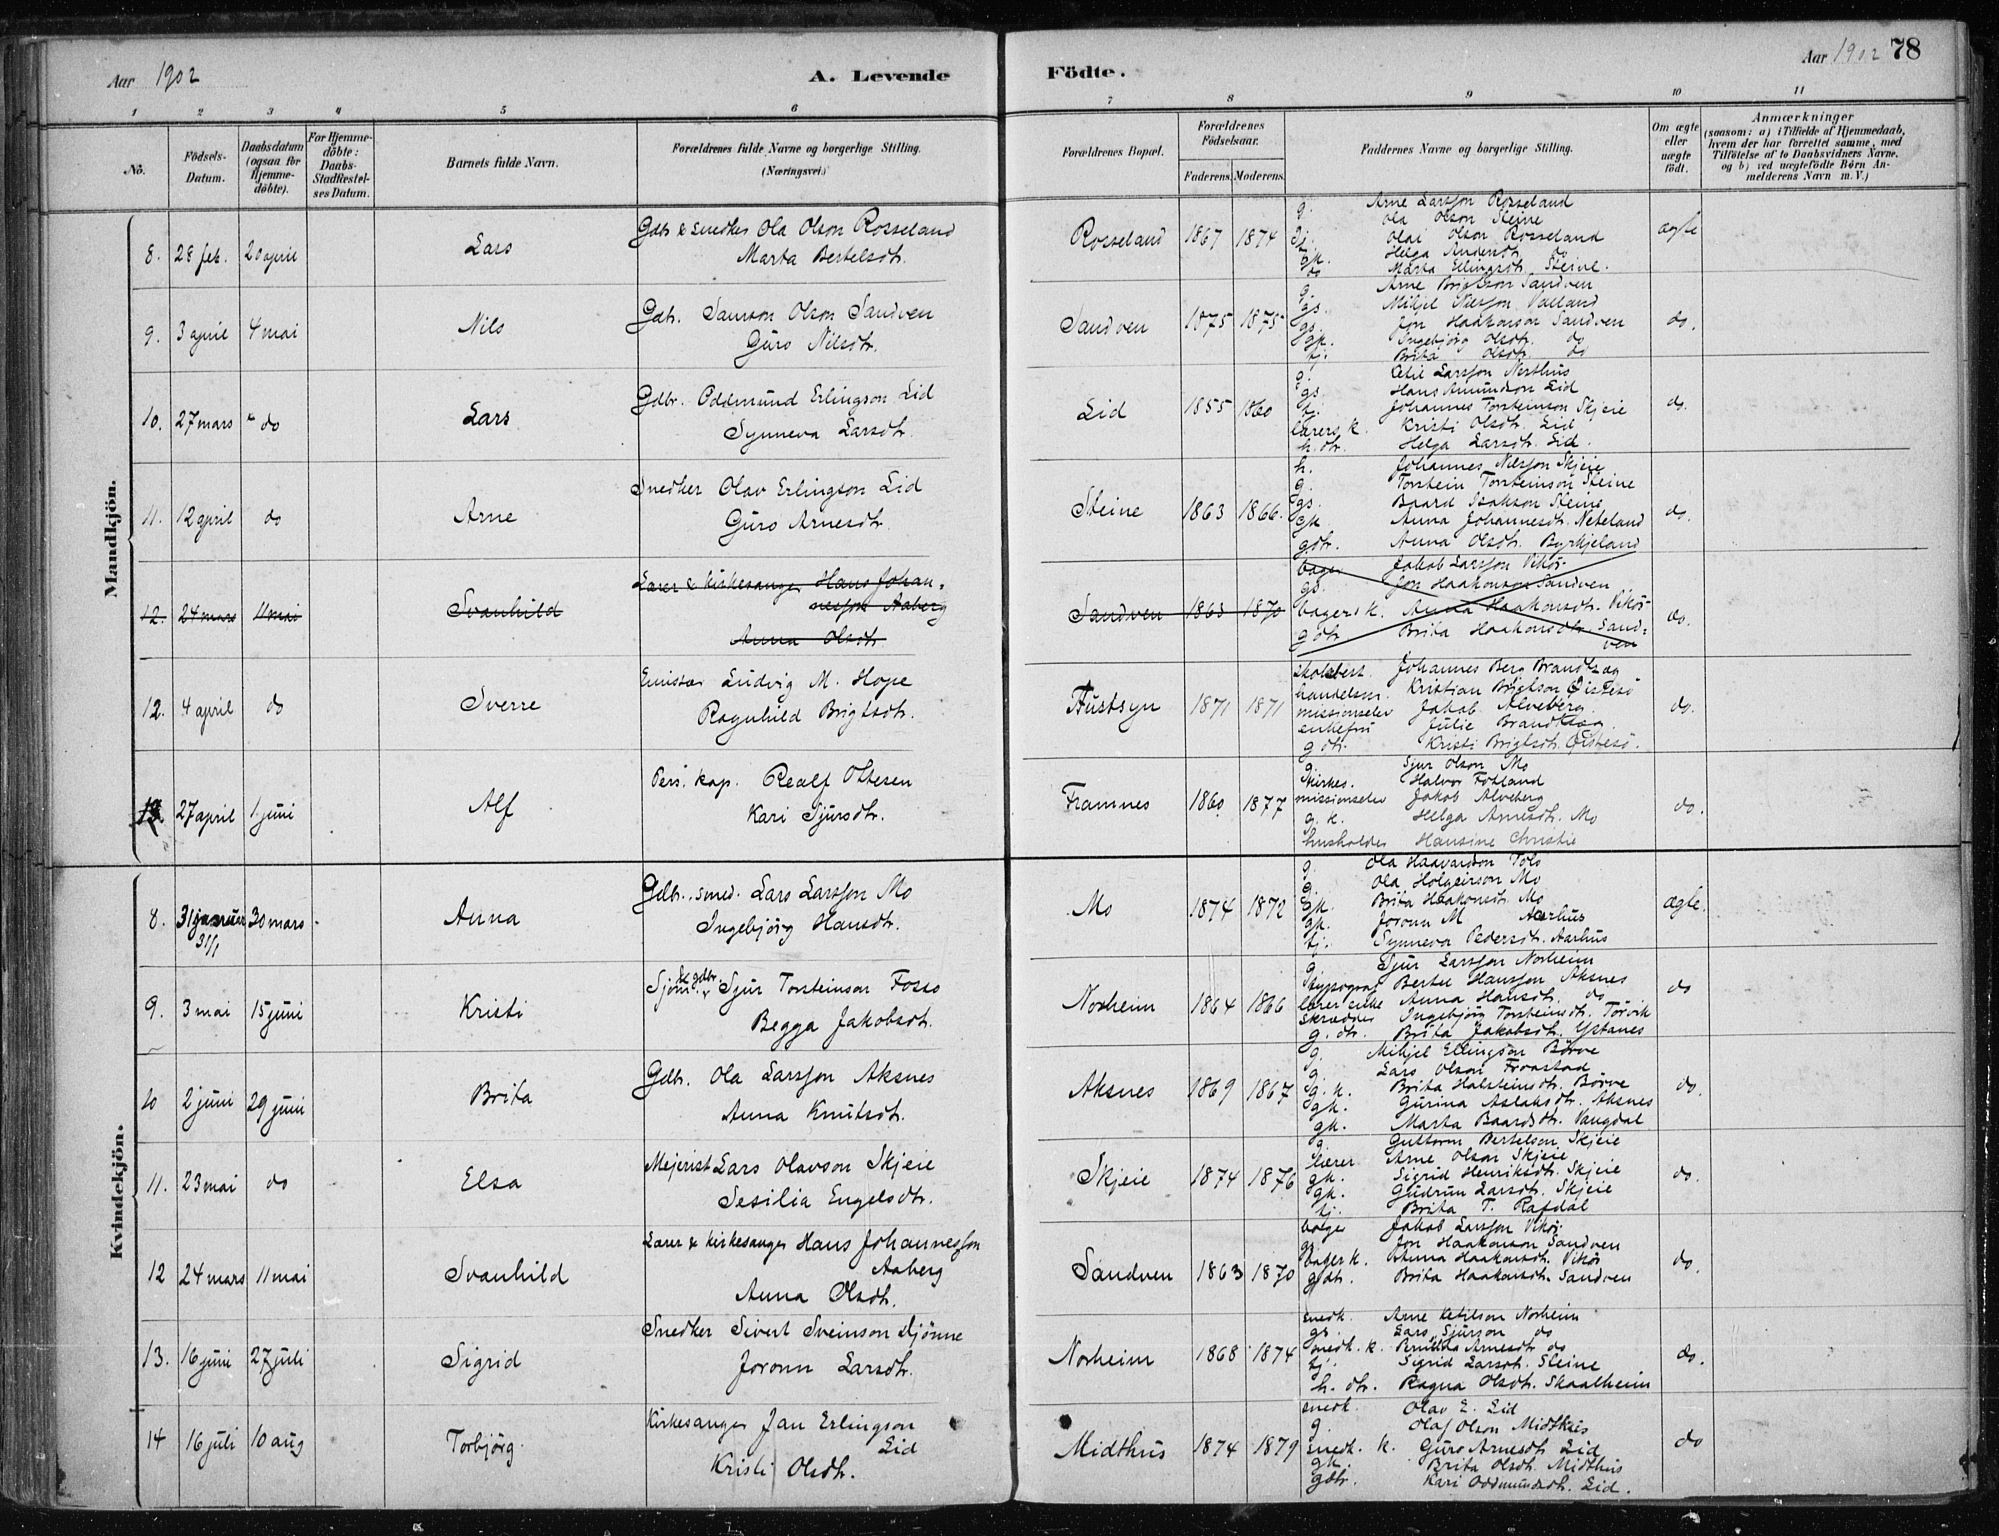 Aar 1902
A. Levende
Födte.
Aar 1902 78
1 2 3 4 5 6 7 8 9 10 11
No.
Födsels-Datum.
Daabsdatum (ogsaa for Hjemme-döbte).
For Hjemme-döbte: Daabs-Stadfæstel-ses Datum.
Barnets fulde Navn.
Forældrenes fulde Navne og borgerlige Stilling. (Næringsvei.)
Forældrenes Bopæl.
Forældrenes Födselsaar.
Faderens. Moderens.
Faddernes Navne og borgerlige Stilling.
Om ægte eller uægte födt.
Anmærkninger
(saasom: a) i Tilfælde af Hjemmedaab, hvem der har forrettet samme, med Tilföielse af to Daabsvidners Navne, og b) ved uægtefödte Börn An-melderens Navn m. V.)
Mandkjön.
8. 28 feb. 20 april Lars Gdbr & snedker Ola Olson Rosseland
Marta Bertelsdtr.
Rosseland 1867 1874
g. Arne Larsson Rosseland
Ola Olson Steine
Olai Olson Rosseland
gk. Helga Andersdtr do
do Marta Ellingsdtr. Steine.
ægte
9. 3 april 4 mai Nils Gdbr. Samson Olson Sandven
Guro Nilsdtr.
Sandven 1875 1875
g. Arne Brigtson Sandven
gs. Mikjel Nilsson Valland
gs. Jon Haakonson Sandven
gk. Ingebjörg Olsdtr. do
tj. Brita Olsdtr. do
do.
10. 27 mars do Lars Gdbr. Oddmund Erlingson Lid
Synneva Larsdtr.
Lid 1855 1860
g. Ketil Larsson Nerthus
gs. Hans Amundson Lid
tj. Johannes Torsteinson Skjeie
lærers k. Kristi Olsdtr. Lid
h. dtr. Helga Larsdtr. Lid.
do.
11. 12 april do Arne Snedker Olav Erlingson Lid
Guro Arnesdtr.
Steine 1863 1866.
h. Johannes Nilsson Skjeie
g. Torstein Torsteinson Steine
gs. Baard Isakson Steine
gk Anna Johannesdtr. Neteland
gdtr. Anna Olsdtr. Byrkjeland
do.
12. 24 mars 11 mai Svanhild Lærer & kirkesanger Hans Johan-
nesson Aaberg
Anna Olsdtr
Sandven 1863 1870
bager Jakob Larsson Vikör
gs. Jon Haakonson Sandven
bagers k. Anna Haakonsdtr. Vikör
gdtr Brita Haakonsdtr. Sand-
ven
do.
12. 4 april do Sverre Emissær Ludvig M. Hope
Ragnhild Brigtsdtr.
1871 1871
Johannes Berg Brandtzæg
handelsm. Kristian Brigtson Öistesö
missionselev Jakob Alveberg.
enkefru Julie Brandtzæg.
g dtr. Kristi Brigtsdtr. Öistesö.
do.
13. 27 april 1 juni Alf Pers. kap. Realf Ottesen
Kari Sjursdtr.
Framnes 1860 1877
g. Sjur Olson Mo
kirkes. Halvor Fotland
missionselev Jakob Alveberg
g. k. Helga Arnesdtr. Mo
husholder Hansine Christie
do.
Kvindekjön.
8. 31 januar 30 mars
31/1
Anna Gdbr., smed. Lars Larsson Mo
Ingebjörg Hansdtr.
Mo 1874 1872
g. Ola Haavardson Tolo
g. Ola Holgeirson Mo
gk. Brita Haakonsdtr. Mo
gk. Joronn M Aarhus
tj. Synneva Pedersdtr. Aarhus
ægte.
9. 3 mai 15 juni Kristi Sjöm. & gdbr. Sjur Torsteinson Fosso
Begga Jakobsdtr.
Norheim 1864 1866
g. Sjur Larsson Norheim
typograf Bertel Hansson Aksnes
lærer enke Anna Hansdtr. do
skrædder Ingebjörg Torsteinsdtr. Torvik
g. dtr. Brita Jakobsdtr. Ystanes
do
10 2 juni 29 juni Brita Gdbr. Ola Larsson Aksnes
Anna Knutsdtr.
Aksnes 1869 1867
g. Mikjel Ellingson Börve
g. Lars Olson Froastad
g. k. Brita Halsteinsdtr. Börve
gk. Gurina Aslaksdtr. Aksnes
gk. Marta Baardsdtr. Vangdal
do.
11. 23 mai do Elsa Mejerist Lars Olavson Skjeie
Sesilia Engelsdtr.
Skjeie 1874 1876
g. Guttorm Bertelson Skjeie
lærer Arne Olson Skjeie
gk. Sigrid Henriksdtr. Skjeie
gk. Gudrun Larsdtr. Skjeie
tj. Brita T. Rafdal
do.
12 24 mars 11 mai Svanhild Lærer & kirkesanger Hans Johannesson
Aaberg
Anna Olsdtr.
Sandven 1863 1870
bager Jakob Larsson Vikör
gs. Jon Haakonson Sandven
bager k. Anna Haakonsdtr. Vikör
gdtr. Brita Haakonsdtr. Sandven
do.
13. 16 juni 27 juli Sigrid Snedker Sivert Sveinson Djönne
Joronn Larsdtr.
Norheim 1868 1874
snedk. Arne Ketilson Norheim
gs. Lars Sjurson do
snedk. k. Arnesdtr do
tj. Sigrid Larsdtr. Steine
h. dtr. Ragna Olsdtr. Skaalheim
do.
14 16 juli 10 aug Torbjörg. Kirkesanger Jan Erlingson
Lid
Kristi Olsdtr.
Midthus 1874 1879
snedk. Olav E. Lid
g. Olaf Olson Midthus
snedk. k. Guro Arnesdtr Lid
gk. Brita Olsdtr. Midthus
gdtr. Kari Oddmundsdtr. Lid.
do